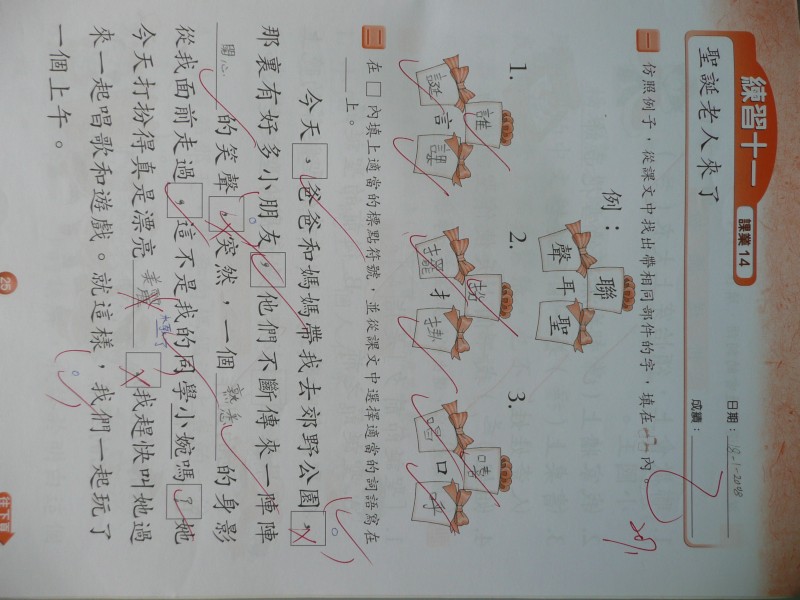 練習十一 課業14
日期：18-1-2018
聖誕老人來了
成績：
一 仿照例子，從課文中找出帶相同部件的字，填在 內。
例：
聯
聲 耳 聖
1.
誰
誕 言 課
2.
扮
擺 扌 掛
3.
口
二 在□內填上適當的標點符號，並從課文中選擇適當的詞語寫在
＿＿上。
今天，爸爸和媽媽帶我去郊野公園，
那裏有好多小朋友，他們不斷傳來一陣陣
開心的笑聲。突然，一個熟悉的身影
從我面前走過，這不是我的同學小婉嗎？她
今天打扮得真是漂亮，我趕快叫她過
來一起唱歌和遊戲。就這樣，我們一起玩了
一個上午。
25
往下頁